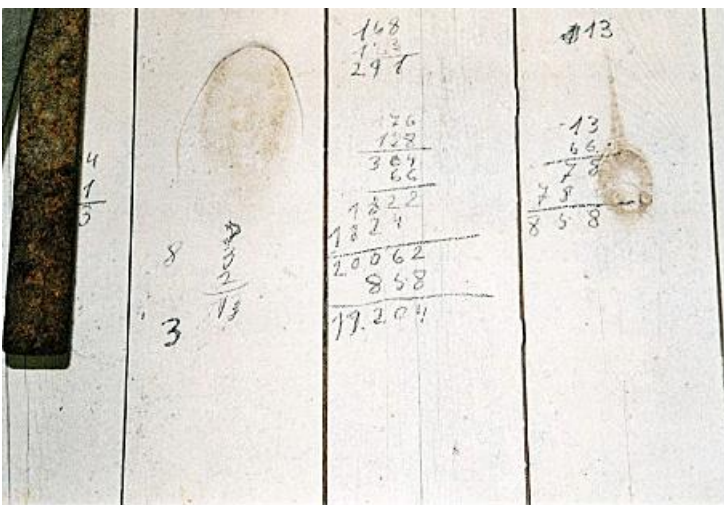 4
1
3
8
3
3
2
13
168
291
176
128
304
66
1822
1824
20062
858
19.204
13
13
66.
78
78
858